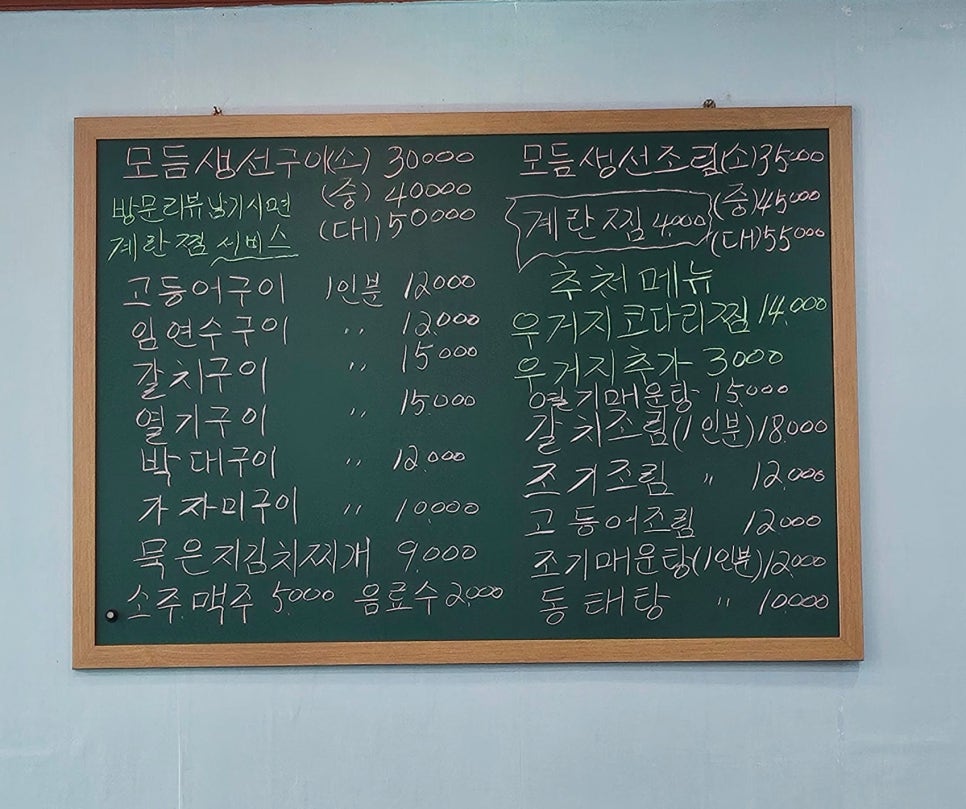 모듬생선구이(소) 30000
(중) 40000
(대) 50000
방문리뷰남기시면
계란찜 서비스
고등어구이 1인분 12000
임연수구이 〃 12,000
갈치구이 〃 15000
열기구이 〃 15000
박대구이 〃 12,000
가자미구이 〃 10,000
묵은지김치찌개 9,000
소주.맥주 5000 음료수 2,000
모듬생선조림(소)35000
(중)45000
(대)55000
계란찜 4000
추천메뉴
우거지코다리찜 14,000
우거지추가 3000
열기매운탕 15,000
갈치조림(1인분)18,000
조기조림 〃 12,000
고등어조림 12000
조기매운탕(1인분)12000
동태탕 〃 10000